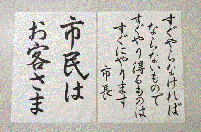 すぐやらなければ
ならないもので
すぐやり得るものは
すぐにやります
市長
市民は
お客さま